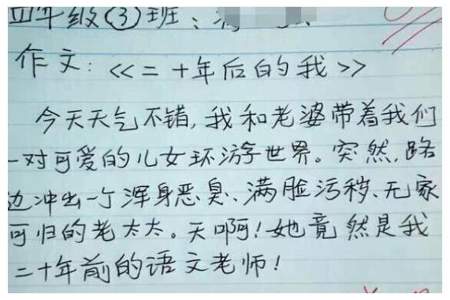 四年级(3)班:
作文:《二十年后的我》
今天天气不错,我和老婆带着我们
一对可爱的儿女环游世界。突然,路
边冲出一个浑身恶臭、满脸污秽、无家
可归的老太太。天啊!她竟然是我
二十年前的语文老师!